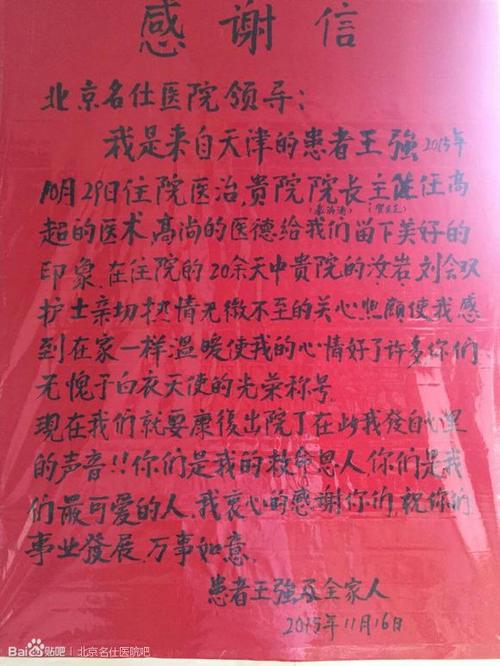 感谢信
北京名仕医院领导:
我是来自天津的患者王強2015年
10月29日住院医治,贵院院长主任高
超的医术,高尚的医德给我们留下美好的
印象.在住院的20余天中贵院的汝岩.刘会双
护士亲切热情无微不至的关心照顾使我感
到在家一样温暖使我的心情好了许多你们
无愧于白衣天使的光荣称号.
现在我们就要康復出院了在此我發自心里
的声音!!你们是我的救命恩人你们是我
们最可爱的人.我衷心的感谢你们,祝你们
事业發展.万事如意.
患者王強及全家人
2015年11月16日
Bai贴吧 | 北京名仕医院吧